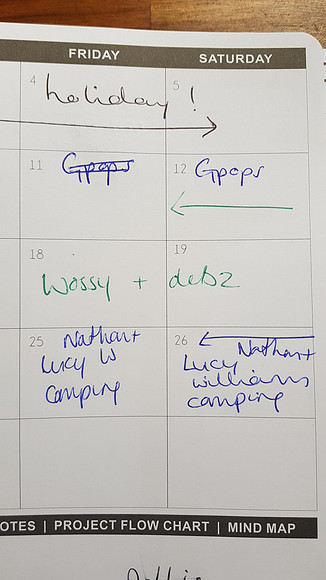 FRIDAY SATURDAY
4 5
holiday !
11 Gpops 12 Gpops
18 19
Wossy + debz
25 Nathan +
Lucy W
camping
26 Nathan +
Lucy
williams
camping
OTES | PROJECT FLOW CHART | MIND MAP